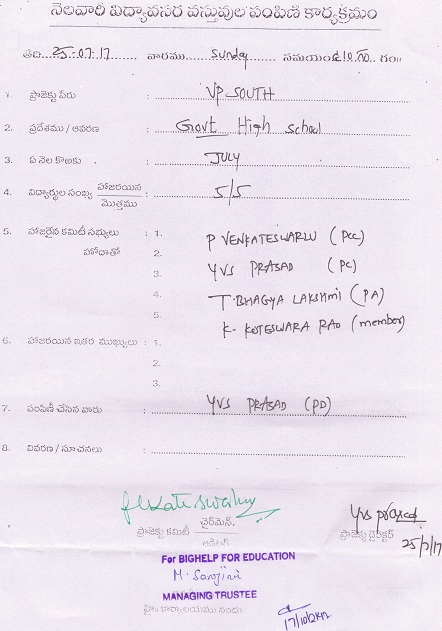 నెలవారీ విద్యావసర వస్తువుల పంపిణి కార్యక్రమం
తేది...25-07-17... వారము... Sunday ...సమయం...10.00...గం॥
1. ప్రాజెక్టు పేరు : VP SOUTH
2. ప్రదేశము / ఆవరణ : Govt High School
3. ఏ నెల కొఱకు : JULY
4. విద్యార్థుల సంఖ్య హాజరయిన / మొత్తము : 5/5
5. హాజరైన కమిటీ సభ్యులు : 1. P VENKATESWARLU (PCC)
హోదాతో 2.
3. YVS PRASAD (PC)
4. T. BHAGYA LAKSHMI (PA)
5. K. KOTESWARA RAO (member)
6. హాజరయిన ఇతర ముఖ్యులు : 1.
2.
3.
7. పంపిణీ చేసిన వారు : YVS PRASAD (PD)
8. వివరణ / సూచనలు :
ప్రాజెక్టు కమిటీ ఛైర్మెన్,
ఆడిటర్
ప్రాజెక్టు డైరెక్టర్
25/7/17
For BIGHELP FOR EDUCATION
M. Sarojini
MANAGING TRUSTEE
హైః కార్యాలయము నందు